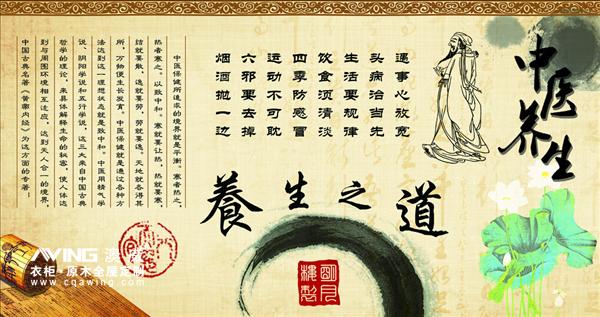 中医养生
遇事心放宽
头病治当先
生活要规律
饮食须清淡
四季防感冒
运动不可耽
六邪要去掉
烟酒抛一边
中医保健所追求的境界就是平衡。寒者热之，
热者寒之。以致中和。寒就要让热，热就要寒，
结就要散，逸就要劳，劳就要逸。天地就各得其
所，万物便生长发育。中医保健就是通过各种方
法达到这一理想状态就是致中和。中医用精气学
说、阴阳学说和五行学说，这三大来自中国古典
哲学的理论，来具体解释生命的秘密，使人体达
到与周围环境相互适应，达到天人合一的境界，
中国古典名著《黄帝内经》为这方面的专著。
養生之道
衣柜·原木全屋定制
www.cqawing.com